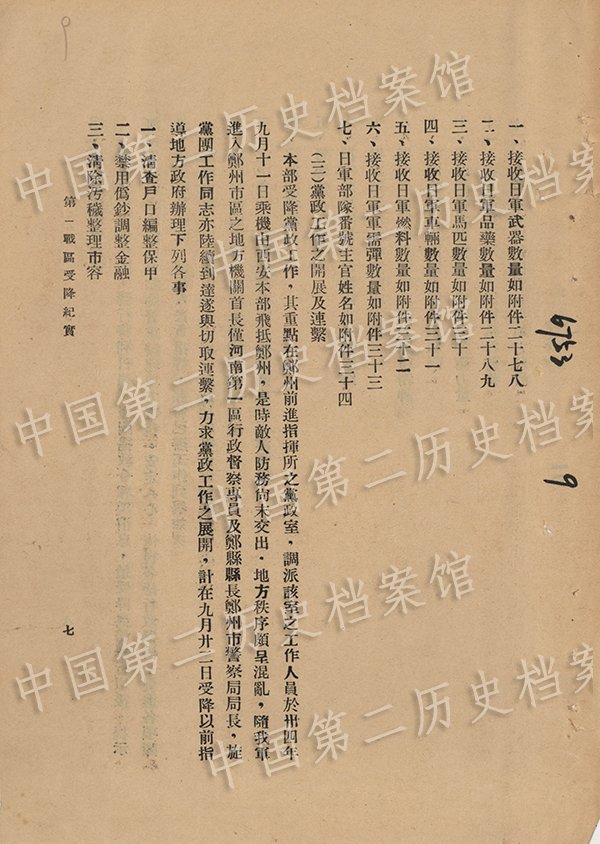 一、接收日軍武器數量如附件二十七八
二、接收日軍品藥數量如附件二十八九
三、接收日軍馬匹數量如附件三十
四、接收日軍車輛數量如附件三十一
五、接收日軍燃料數量如附件三十二
六、接收日軍軍需彈數量如附件三十三
七、日軍部隊番號主官姓名如附件三十四
(三)黨政工作之開展及連繫
本部受降黨政工作，其重點在鄭州前進指揮所之黨政室，調派該室之工作人員於卅四年
九月十一日乘機由西安本部飛抵鄭州，是時敵人防務尙未交出．地方秩序頗呈混亂，隨我軍
進入鄭州市區之地方機關首長僅河南第一區行政督察專員及鄭縣縣長鄭州市警察局局長，旋
黨團工作同志亦陸續到達遂與切取連繫，力求黨政工作之展開，計在九月廿二日受降以前指
導地方政府辦理下列各事
一、清查戶口編整保甲
二、禁用僞鈔調整金融
三、清除汚穢整理市容
第一戰區受降紀實
七
6753
9
9
中国第二历史档案馆
中国第二历史档案馆
中国第二历史档案馆
中国第二历史档案馆
中国第二历史档案馆
中国第二历史档案馆